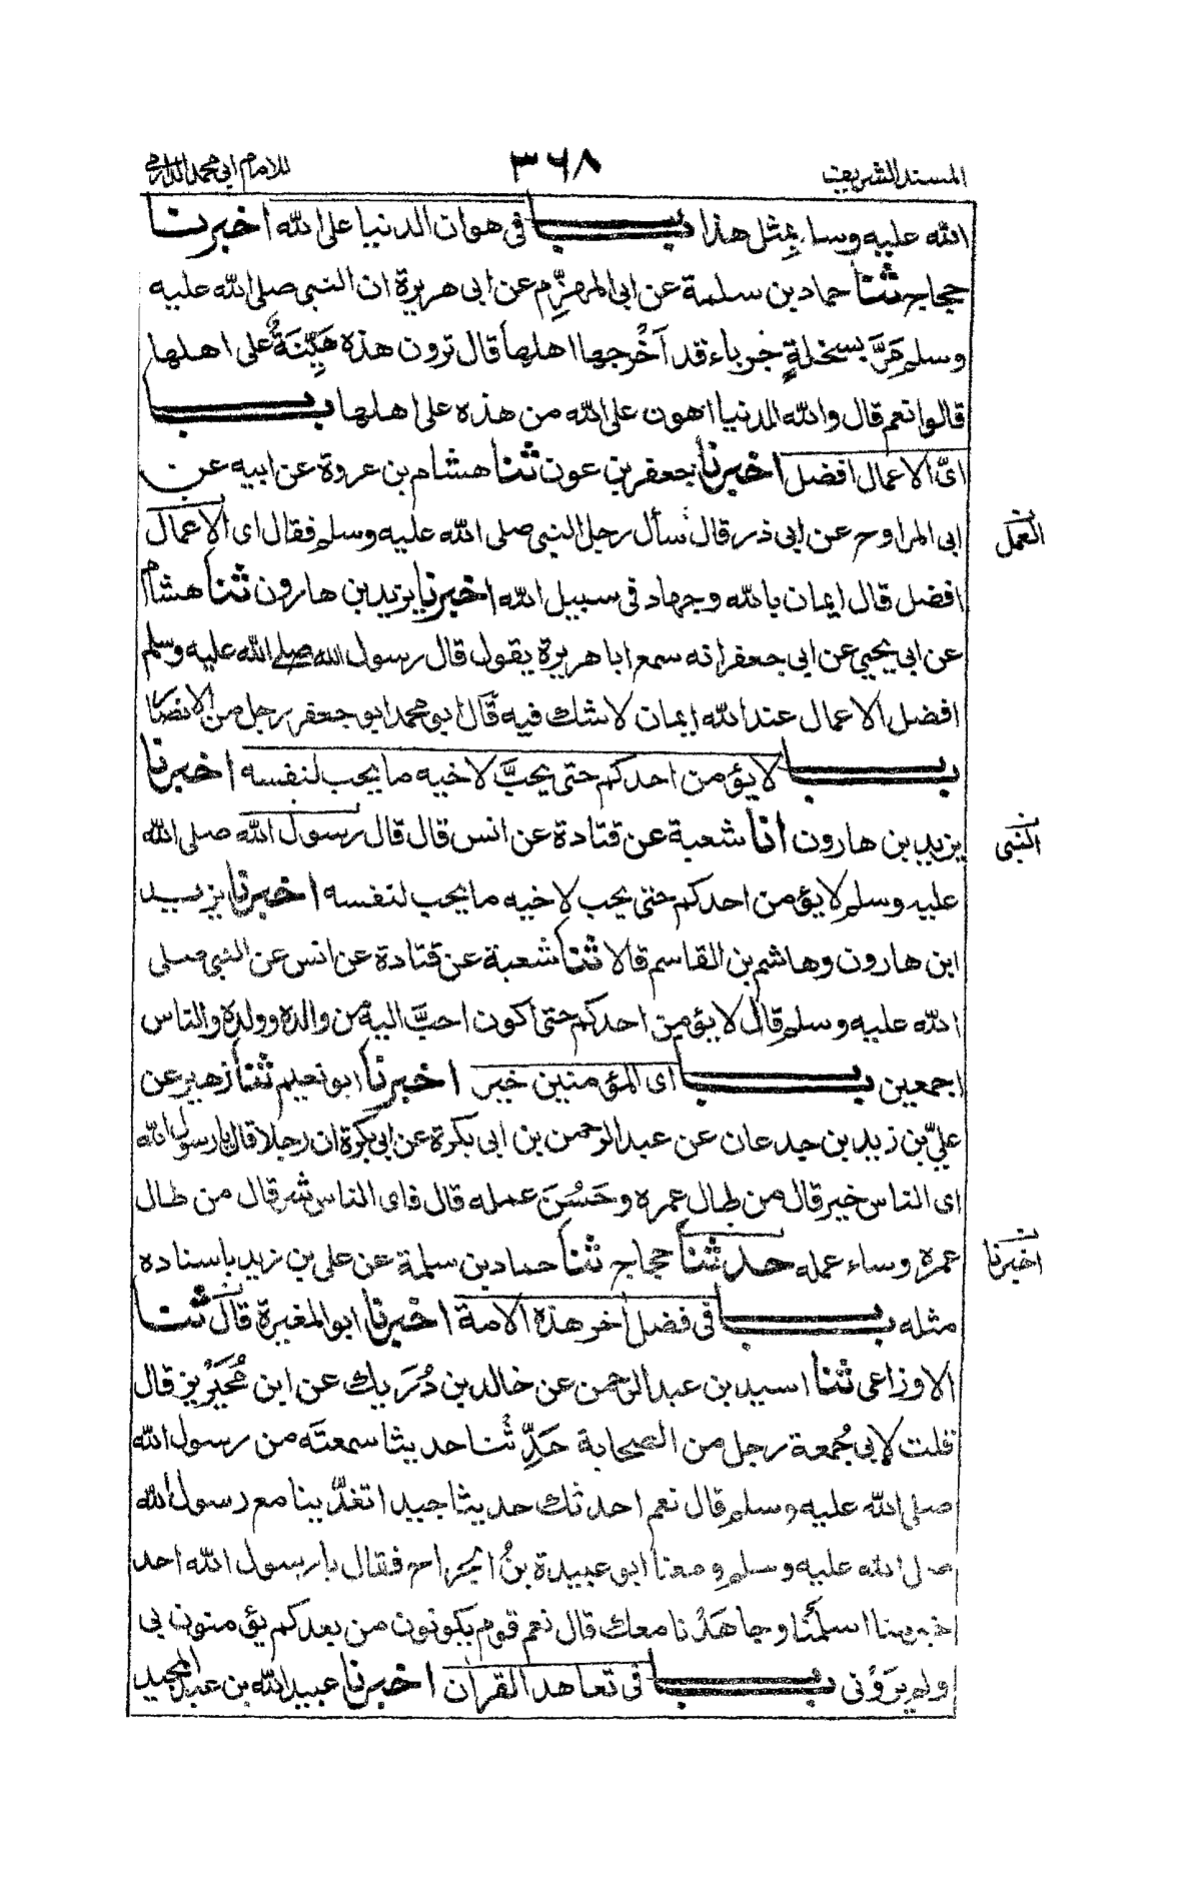 المسند الشريف ٣٦٨ للامام ابي محمد الدارمي
الله عليه وسلم بمثل هذا باب في هوان الدنيا على الله اخبرنا
حجاج ثنا حماد بن سلمة عن ابي المهزِّم عن ابى هريرة ان النبي صلى الله عليه
وسلم مَرَّ بسخلةٍ جرباء قد اَخْرجها اهلها قال ترون هذه هَيِّنَةٌ على اهلها
قالوا نعم قال والله للدنيا اهون على الله من هذه على اهلها باب
اىّ الاعمال افضل اخبرنا جعفر بن عون ثنا هشام بن عروة عن ابيه عن
ابى المراوح عن ابى ذر قال سأل رجل النبي صلى الله عليه وسلم فقال اى الاعمال
العمل
افضل قال ايمان بالله وجهاد في سبيل الله اخبرنا يزيد بن هارون ثنا هشام
عن ابي يحيى عن ابى جعفر انه سمع ابا هريرة يقول قال رسول الله صلى الله عليه وسلم
افضل الاعمال عند الله ايمان لا شك فيه قال ابو محمد ابو جعفر رجل من الانصار
باب لا يؤمن احدكم حتى يحبَّ لاخيه ما يحب لنفسه اخبرنا
يزيد بن هارون انا شعبة عن قتادة عن انس قال قال رسول الله صلى الله
النبي
عليه وسلم لا يؤمن احدكم حتى يحب لاخيه ما يحب لنفسه اخبرنا يزيد
ابن هارون وهاشم بن القاسم قالا ثنا شعبة عن قتادة عن انس عن النبي صلى
الله عليه وسلم قال لا يؤمن احدكم حتى اكون احبَّ اليه من والده وولده والناس
اجمعين باب اى المؤمنين خير اخبرنا ابو نعيم ثنا زهير عن
عليّ بن زيد بن جدعان عن عبد الرحمن بن ابى بكرة عن ابى بكرة ان رجلا قال يا رسول الله
اى الناس خير قال من طال عمره وحَسُنَ عمله قال فاى الناس شر قال من طال
عمره وساء عمله حدثنا حجاج ثنا حماد بن سلمة عن على بن زيد باسناده
اخبرنا
مثله باب في فضل اخر هذه الامة اخبرنا ابو المغيرة قال ثنا
الاوزاعى ثنا اسيد بن عبد الرحمن عن خالد بن دُرَيك عن ابن مُحَيْرِيز قال
قلت لابي جُمعة رجل من الصحابة حَدِّثْنا حديثا سمعتَه من رسول الله
صلى الله عليه وسلم قال نعم احدثك حديثا جيدا تغدّينا مع رسول الله
صلى الله عليه وسلم ومعنا ابو عبيدة بنُ الجراح فقال يا رسول الله احد
خير منا اسلَمْنا وجاهَدْنا معك قال نعم قوم يكونون من بعدكم يؤمنون بي
ولم يرَوْني باب في تعاهد القرآن اخبرنا عبيد الله بن عبد المجيد